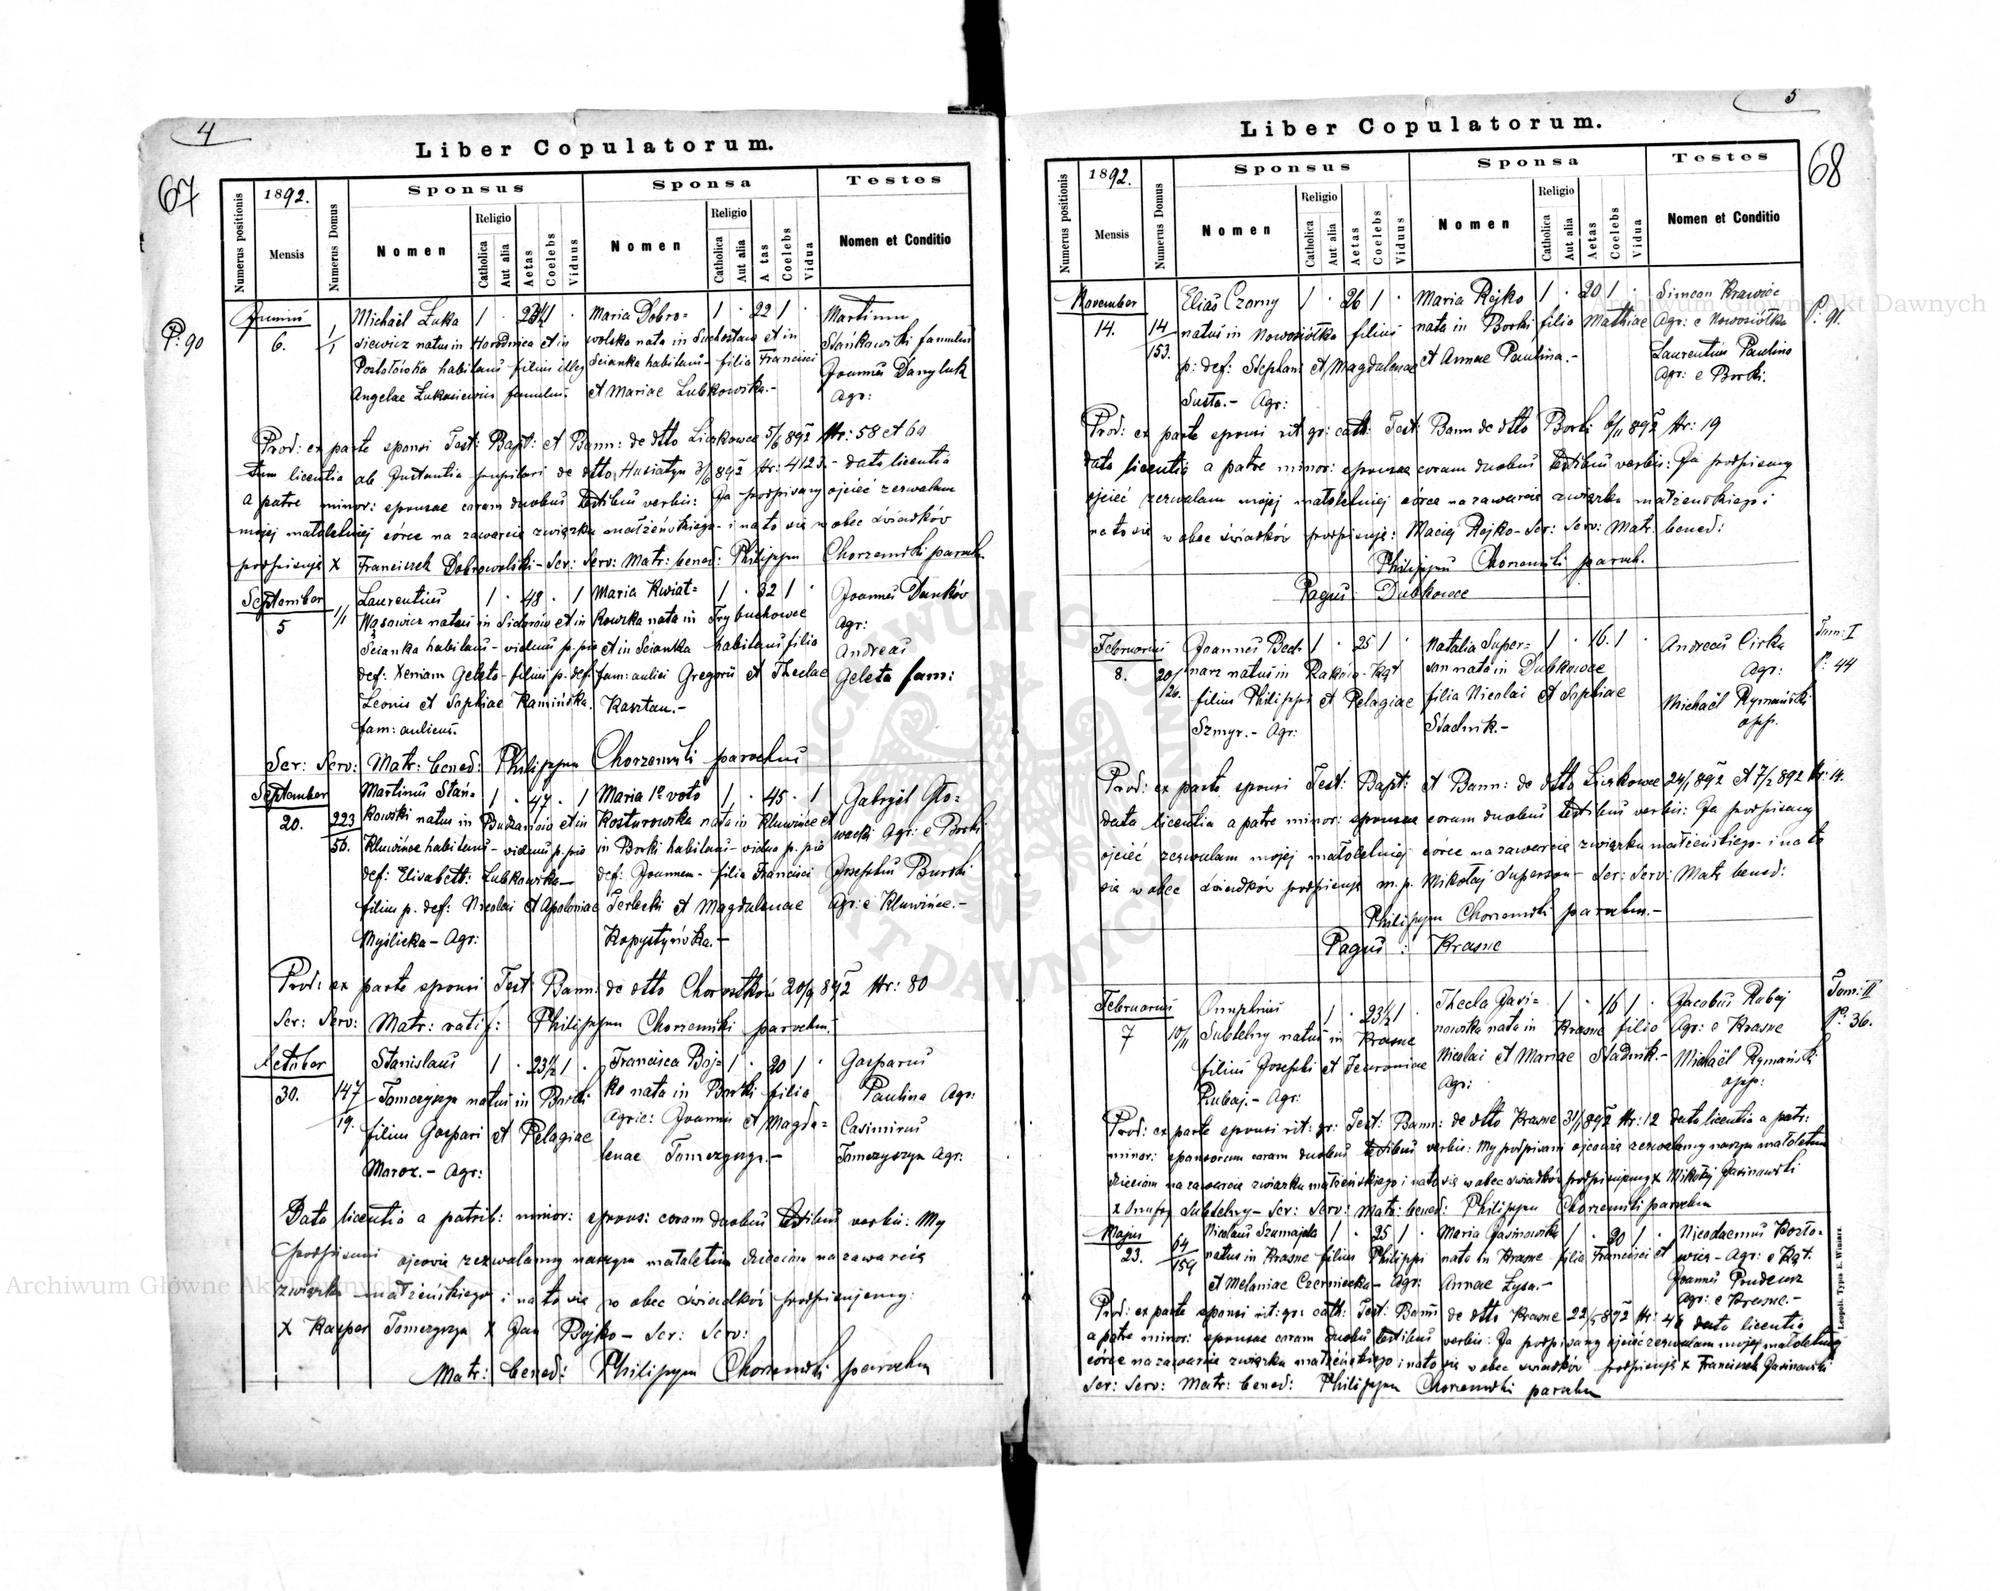 4
Liber Copulatorum.
67
Numerus positionis
1892.
Mensis
Numerus Domus
Sponsus
Sponsa
Testes
Nomen
Religio
Catholica
Aut alia
Aetas
Coelebs
Viduus
Nomen
Religio
Catholica
Aut alia
Aetas
Coelebs
Vidua
Nomen et Conditio
P: 90
Junius 6. 1/1
Michaël Luka 1 · 1 · Maria Dobro= 1 · 22 1 · Martinus
siewicz natus in Horodnica et in wolska nata in Suchostaw et in Stankowski famulus
habitans filius illeg Scianka habitans - filia Francisci Joannes Danyluk
Angelae Lukasiewicz famulus. et Mariae Lubkowska.- Agr:
Prod: ex parte sponsi Test: Bapt: et Bann: de dtto Liczkowce 5/6 892 Nr: 58 et 60
tum licentia ab Instantia pupilari de dtto Husiatyn 3/6 892 Nr: 4123 - data licentia
a patre minor: sponsae coram duobus testibus verbis: Ja podpisany ojciec zezwalam
mojej małoletniej córce na zawarcie związku małżeńskiego - i na to się w obec świadków
podpisuję x Franciszek Dobrowolski - Scr: Serv: Matr: bened: Philippus Chorzemski paroch.
September 5 1/1
Laurentius 1 · 48 · 1 Maria Kwiat= 1 · 32 1 · Joannes Dunków
Wąsowicz natus in Sidorów et in kowska nata in Trybuchowce Agr:
Scianka habitans - viduus p. pie et in Scianka habitans filia Andreas
def: Xeniam Geleta - filius p. def: fam: aulici Gregorii et Theclae Geleta fam:
Leonis et Sophiae Kamińska. Kasztan.-
fam: aulicus.
Scr: Serv: Matr: bened: Philippus Chorzemski parochus
September 20. 223/56.
Martinus Stań= 1 · 47 · 1 Maria 1º voto 1 · 45 · 1 Gabryël Gło=
kowski natus in Budzanów et in Kosturowska nata in Kluwińce et wacki Agr: e Borki
Kluwińce habitans - viduus p. pie in Borki habitans - vidua p. pie
def: Elisabeth: Lubkowska - def: Joannem - filia Francisci Josephus Burski
filius p. def: Nicolai et Apoloniae Terlecki et Magdalenae Agr: e Kluwińce.-
Myślicka - Agr: Kopystyńska.-
Prod: ex parte sponsi Test Bann: de dtto Chorostków 20/9 892 Nr: 80
Scr: Serv: Matr: ratif: Philippus Chorzemski parochus.
October 30. 147/19.
Stanislaus 1 · 23½ 1 · Francisca Boj= 1 · 20 1 · Gasparus
Tomczyszyn natus in Borki ko nata in Borki filia Paulina Agr:
filius Gaspari et Pelagiae Agric: Joannis et Magda= Casimirus
Maroz.- Agr: lenae Tomczyszyn.- Tomczyszyn Agr:
Data licentia a patrib: minor: spons: coram duobus testibus verbis: My
podpisani ojcowie zezwalamy naszym małoletnim dzieciom na zawarcie
związku małżeńskiego i na to się w obec świadków podpisujemy:
x Kasper Tomczyszyn x Jan Bojko - Scr: Serv:
Matr: bened: Philippus Chorzemski parochus
5
Liber Copulatorum.
68
Numerus positionis
1892.
Mensis
Numerus Domus
Sponsus
Sponsa
Testes
Nomen
Religio
Catholica
Aut alia
Aetas
Coelebs
Viduus
Nomen
Religio
Catholica
Aut alia
Aetas
Coelebs
Vidua
Nomen et Conditio
P: 91.
November 14. 14/153.
Elias Czorny 1 · 26 1 · Maria Rejko 1 · 20 1 · Simeon Krawiec
natus in Nowosiółka filius nata in Borki filia Mathiae Agr: e Nowosiółka
p: def: Stephani et Magdalenae et Annae Paulina.- Laurentius Paulina
Susta.- Agr: Agr: e Borki.
Prod: ex parte sponsi rit: gr: cath: Test: Bann de dtto Borki 892 Nr: 19
data licentia a patre minor: sponsae coram duobus testibus verbis: Ja podpisany
ojciec zezwalam mojej małoletniej córce na zawarcie związku małżeńskiego i
na to się w obec świadków podpisuję: Maciej Rejko - Scr: Serv: Matr: bened:
Philippus Chorzemski paroch.
Pagus: Dubkowce
Februarius 8. 20/126.
Joannes Bed- 1 · 25 1 · Natalia Super= 1 · 16. 1 · Andreas Cirka
narz natus in Raków-Kąt son nata in Dubkowce Agr:
filius Philippi et Pelagiae filia Nicolai et Sophiae Michaël Rymański
Szmyr.- Agr: Stadnik.- opp.
Tom: I
P: 44
Prod: ex parte sponsi Test: Bapt: et Bann: de dtto Liczkowce 24/1 892 et 7/2 892 Nr: 14.
data licentia a patre minor: sponsae coram duobus testibus verbis: Ja podpisany
ojciec zezwalam mojej małoletniej córce na zawarcie związku małżeńskiego - i na to
się w obec świadków podpisuję m. p. Mikołaj Superson - Scr: Serv: Matr bened:
Philippus Chorzemski parochus.-
Pagus: Krasne
Februarius 7 10/11
Onuphrius 1 · 23½ 1 · Thecla Jasi= 1 · 16 1 · Jacobus Rubaj
Subtelny natus in Krasne nowska nata in Krasne filia Agr: e Krasne
filius Josephi et Fevroniae Nicolai et Mariae Stadnik.- Michaël Rymański
Rubaj.- Agr: Agr: opp:
Tom: II
P: 36.
Prod: ex parte sponsi rit: gr: Test: Bann: de dtto Krasne 31/1 892 Nr: 12 data licentia a patr:
minor: sponsorum coram duobus testibus verbis: My podpisani ojcowie zezwalamy naszym małoletnim
dzieciom na zawarcie związku małżeńskiego i na to się w obec świadków podpisujemy x Mikołaj Jasinowski
x Onufry Subtelny - Scr: Serv: Matr: bened: Philippus Chorzemski parochus
Majus 23. 64/159
Nicolaus Szumajda 1 · 25 1 · Maria Jasinowska 1 · 20 1 · Nicodaemus Borto-
natus in Krasne - filius Philippi nata in Krasne - filia Francisci et wicz - Agr: e Kąt.
et Melaniae Czerniecka - Agr: Annae Lysa.- Joannes Prudeusz
Agr: e Krasne.-
Prod: ex parte sponsi rit: gr: cath: Test: Bann de dtto Krasne 22/5 892 Nr: 44 data licentia
a patre minor: sponsae coram duobus testibus verbis: Ja podpisany ojciec zezwalam mojej małoletniej
córce na zawarcie związku małżeńskiego i na to się w obec świadków podpisuję x Franciszek Jasinowski
Scr: Serv: Matr: bened: Philippus Chorzemski parochus
Leopoli. Typis E. Winiarz.
Archiwum Główne Akt Dawnych
Archiwum Główne Akt Dawnych
ARCHIWUM GŁÓWNE AKT DAWNYCH